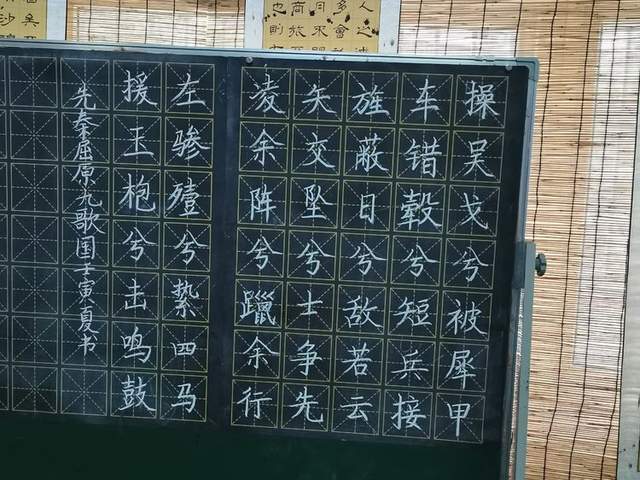 操吴戈兮被犀甲
车错毂兮短兵接
旌蔽日兮敌若云
矢交坠兮士争先
凌余阵兮躐余行
左骖殪兮絷四马
援玉枹兮击鸣鼓
先秦屈原九歌国壬寅夏书